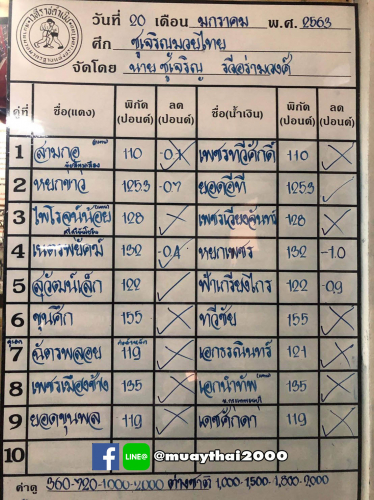 วันที่ 20 เดือน มกราคม พ.ศ. 2563
ศึก ชูเจริญมวยไทย
จัดโดย นาย ชูเจริญ รวีอร่ามวงศ์
คู่ที่ ชื่อ(แดง) พิกัด (ปอนด์) ลด (ปอนด์) ชื่อ(น้ำเงิน) พิกัด (ปอนด์) ลด (ปอนด์)
1 สามกอ 110 -0.1 เพชรทวีศักดิ์ 110
2 หยกขาว 125.3 -0.7 ยอดอีที 125.3
3 ไพโรจน์น้อย 128 128
4 เนตรพยัคฆ์ 132 -0.4 หยกเพชร 132 -1.0
5 สุวัฒน์เล็ก 122 ฟ้าเกรียงไกร 122 -0.9
6 ขุนศึก 155 ทวีชัย 155
คู่เอก
7 ฉัตรพลอย 119 เอกธรณินทร์ 121
8 เพชรเมืองช้าง 135 เอกนำทัพ 135
9 ยอดขุนพล 119 เดชศักดา 119
10
LINE@ @muaythai2000
ค่าดู 360-720-1000-2000 ต่างชาติ 1,000-1,500-1,800-2000